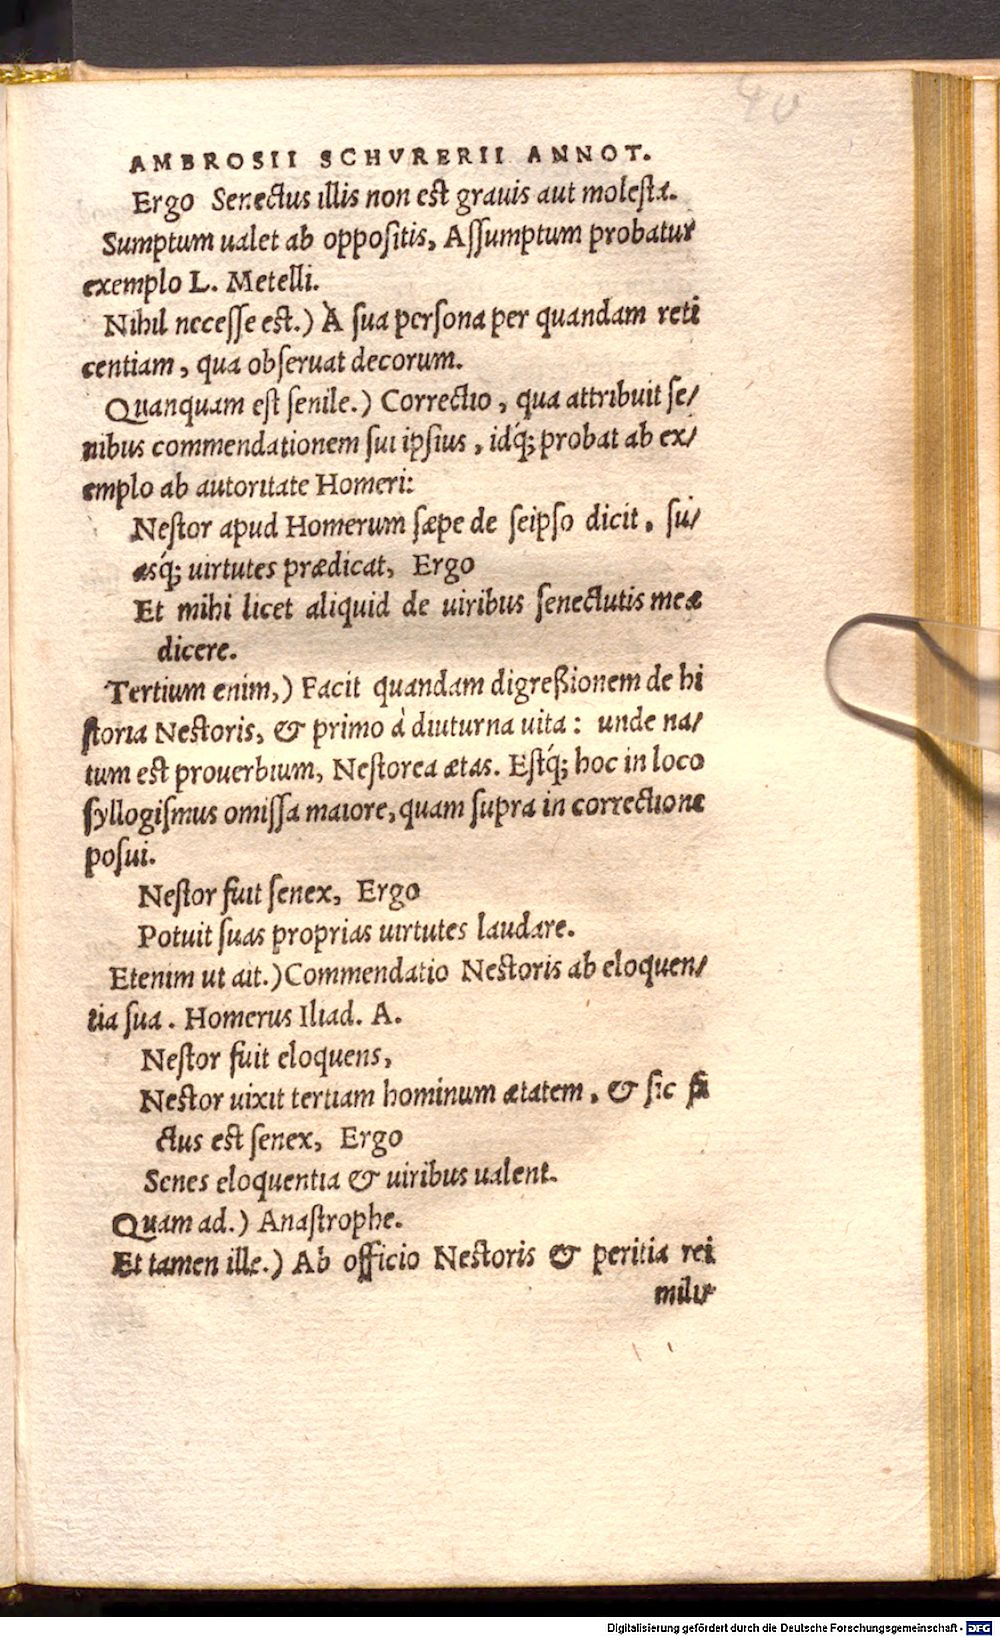 40
AMBROSII SCHVRERII ANNOT.
Ergo Senectus illis non est grauis aut molesta.
Sumptum ualet ab oppositis, Assumptum probatur
exemplo L. Metelli.
Nihil necesse est.) À sua persona per quandam reti
centiam, qua obseruat decorum.
Quanquam est senile.) Correctio, qua attribuit se/
nibus commendationem sui ipsius, idq́; probat ab ex/
emplo ab autoritate Homeri:
Nestor apud Homerum sæpe de seipso dicit, su/
asq́; uirtutes prædicat, Ergo
Et mihi licet aliquid de uiribus senectutis meæ
dicere.
Tertium enim,) Facit quandam digreßionem de hi
storia Nestoris, & primo à diuturna uita: unde na/
tum est prouerbium, Nestorea ætas. Estq́; hoc in loco
syllogismus omissa maiore, quam supra in correctione
posui.
Nestor fuit senex, Ergo
Potuit suas proprias uirtutes laudare.
Etenim ut ait.) Commendatio Nestoris ab eloquen/
tia sua. Homerus Iliad. A.
Nestor fuit eloquens,
Nestor uixit tertiam hominum ætatem, & sic fa
ctus est senex, Ergo
Senes eloquentia & uiribus ualent.
Quam ad.) Anastrophe.
Et tamen ille.) Ab officio Nestoris & peritia rei
mili/
Digitalisierung gefördert durch die Deutsche Forschungsgemeinschaft - DFG